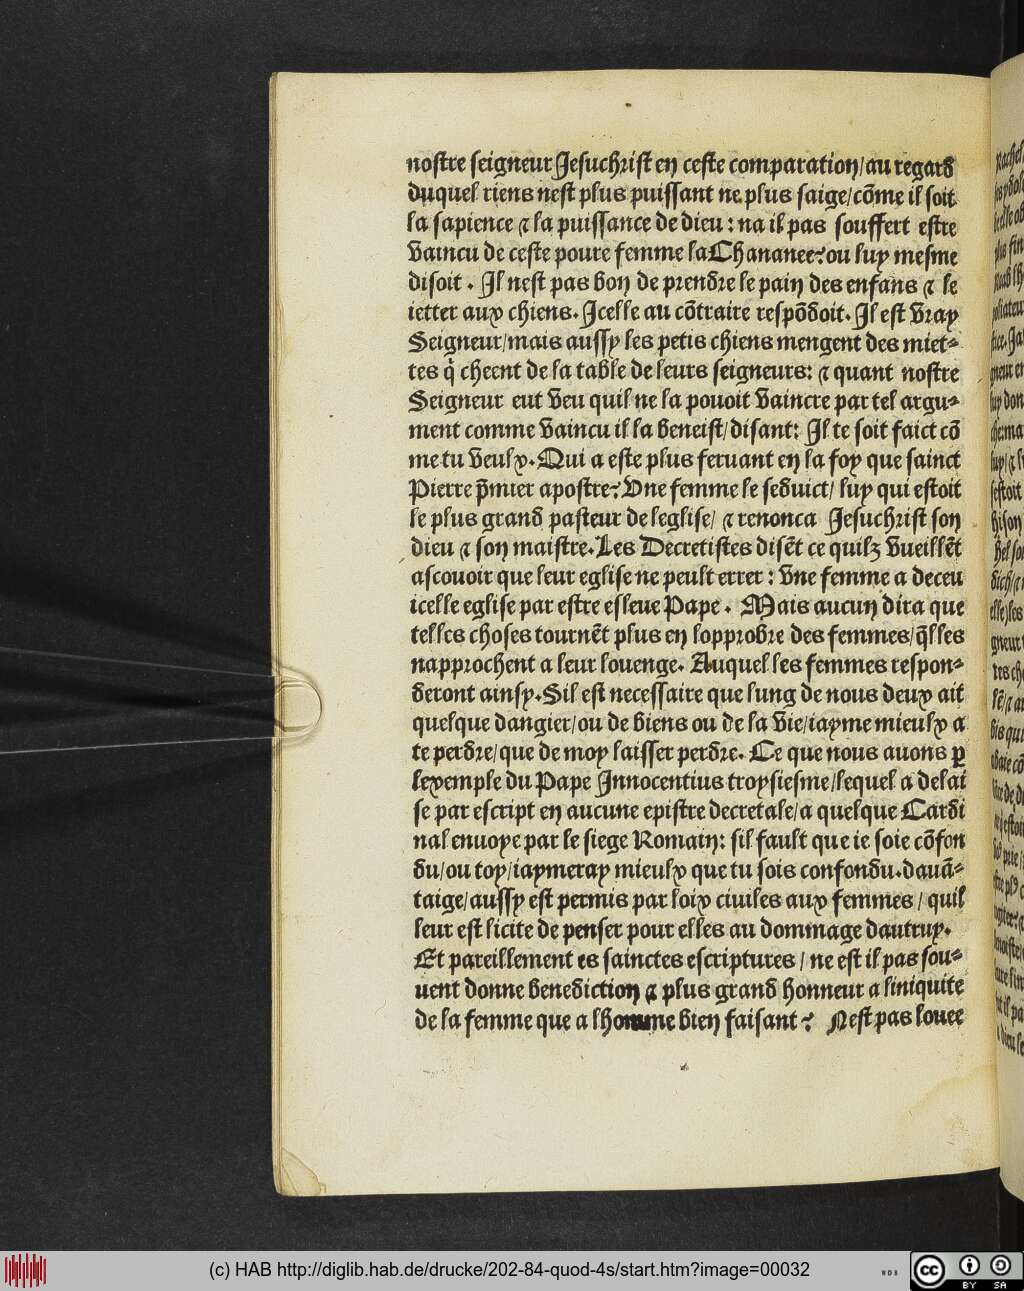 nostre seigneur Jesuchrist en ceste comparation/au regard
duquel riens nest plus puissant ne plus saige/cõme il soit
la sapience ⁊ la puissance de dieu : na il pas souffert estre
vaincu de ceste poure femme la Chananee? ou luy mesme
disoit . Il nest pas bon de prendre le pain des enfans ⁊ le
ietter aux chiens. Icelle au cõtraire respõdoit. Il est vray
Seigneur/mais aussy les petis chiens mengent des miet-
tes q̃ cheent de la table de leurs seigneurs: ⁊ quant nostre
Seigneur eut veu quil ne la pouoit vaincre par tel argu-
ment comme vaincu il la beneist/disant: Il te soit faict cõ
me tu veulx. Qui a este plus feruant en la foy que sainct
Pierre p̃mier apostre? Vne femme le seduict/ luy qui estoit
le plus grand pasteur de leglise/ ⁊ renonca Jesuchrist son
dieu ⁊ son maistre. Les Decretistes disẽt ce quilz vueillẽt
ascouoir que leur eglise ne peult errer : vne femme a deceu
icelle eglise par estre esleue Pape . Mais aucun dira que
telles choses tournẽt plus en lopprobre des femmes/q̃lles
napprochent a leur louenge. Auquel les femmes respon-
deront ainsy. Sil est necessaire que lung de nous deux ait
quelque dangier/ou de biens ou de la vie/iayme mieulx a
te perdre/que de moy laisser perdre. Ce que nous auons ꝑ
lexemple du Pape Innocentius troysiesme/lequel a delai
se par escript en aucune epistre decretale/a quelque Cardi
nal enuoye par le siege Romain: sil fault que ie soie cõfon
du/ou toy/iaymeray mieulx que tu sois confondu. dauã-
taige/aussy est permis par loix ciuiles aux femmes / quil
leur est licite de penser pour elles au dommage dautruy.
Et pareillement es sainctes escriptures / ne est il pas sou-
uent donne benediction ⁊ plus grand honneur a liniquite
de la femme que a lhomme bien faisant ? Nest pas louee
(c) HAB http://diglib.hab.de/drucke/202-84-quod-4s/start.htm?image=00032
WDB
cc BY SA